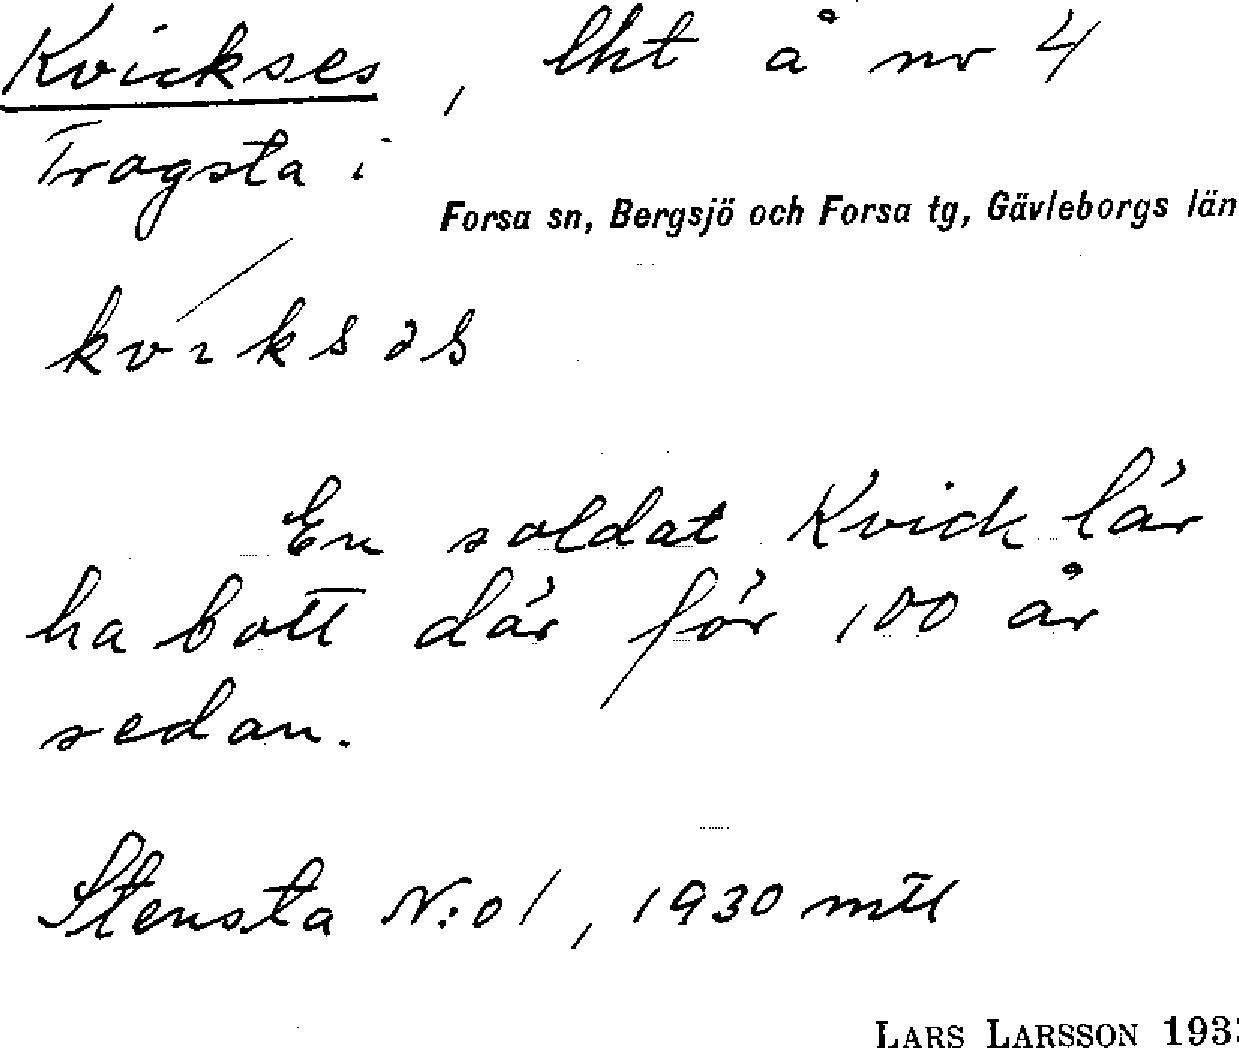 Kvickses, lht å nr 4
Trogsta i
Forsa sn, Bergsjö och Forsa tg, Gävleborgs län
En soldat Kvick lär
ha bott där för 100 år
sedan.
Stensta N:o 1, 1930 mtl
LARS LARSSON 193